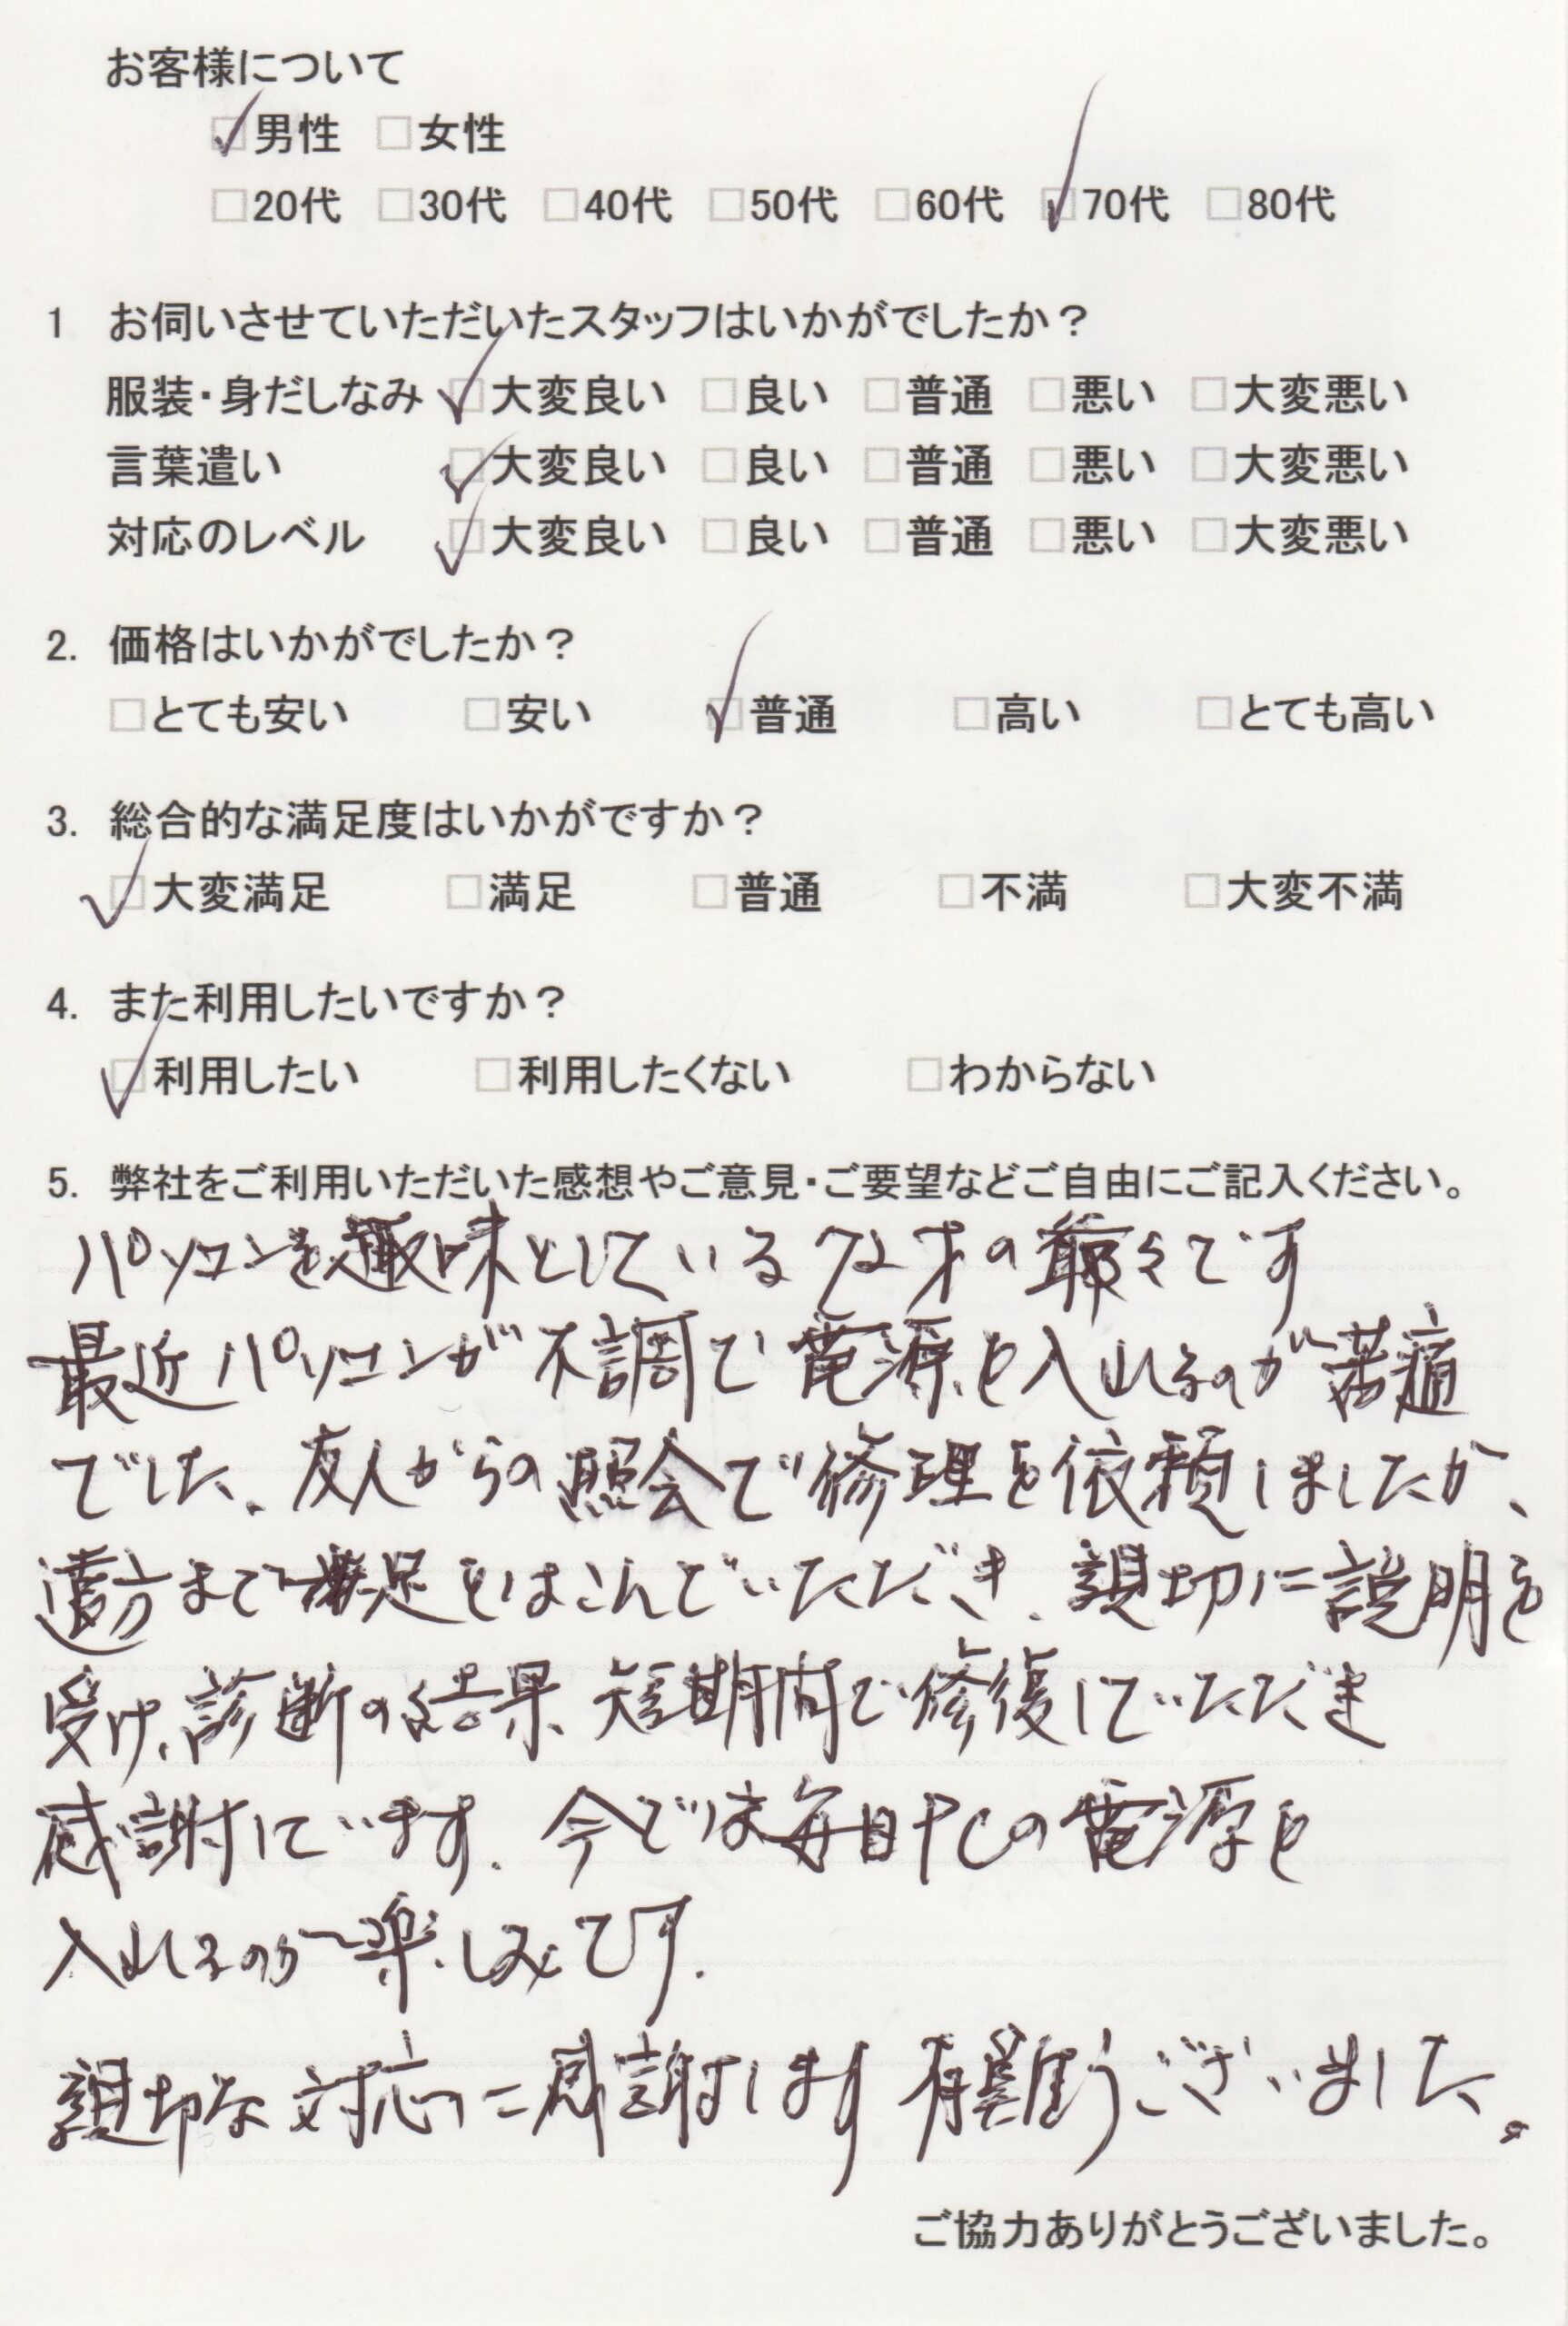 お客様について
☑男性 □女性
□20代 □30代 □40代 □50代 □60代 ☑70代 □80代
1 お伺いさせていただいたスタッフはいかがでしたか？
服装・身だしなみ ☑大変良い □良い □普通 □悪い □大変悪い
言葉遣い ☑大変良い □良い □普通 □悪い □大変悪い
対応のレベル ☑大変良い □良い □普通 □悪い □大変悪い
2. 価格はいかがでしたか？
□とても安い □安い ☑普通 □高い □とても高い
3. 総合的な満足度はいかがですか？
☑大変満足 □満足 □普通 □不満 □大変不満
4. また利用したいですか？
☑利用したい □利用したくない □わからない
5. 弊社をご利用いただいた感想やご意見・ご要望などご自由にご記入ください。
パソコンを趣味としている72才の爺々です
最近パソコンが不調で電源を入れるのが苦痛
でした。友人からの照会で修理を依頼しましたが、
遠方まで足をはこんでいただき、親切に説明を
受け、診断の結果、短期間で修復していただき
感謝しています。今では毎日PCの電源を
入れるのが楽しみです.
親切な対応に感謝します 有難うございました。
ご協力ありがとうございました。